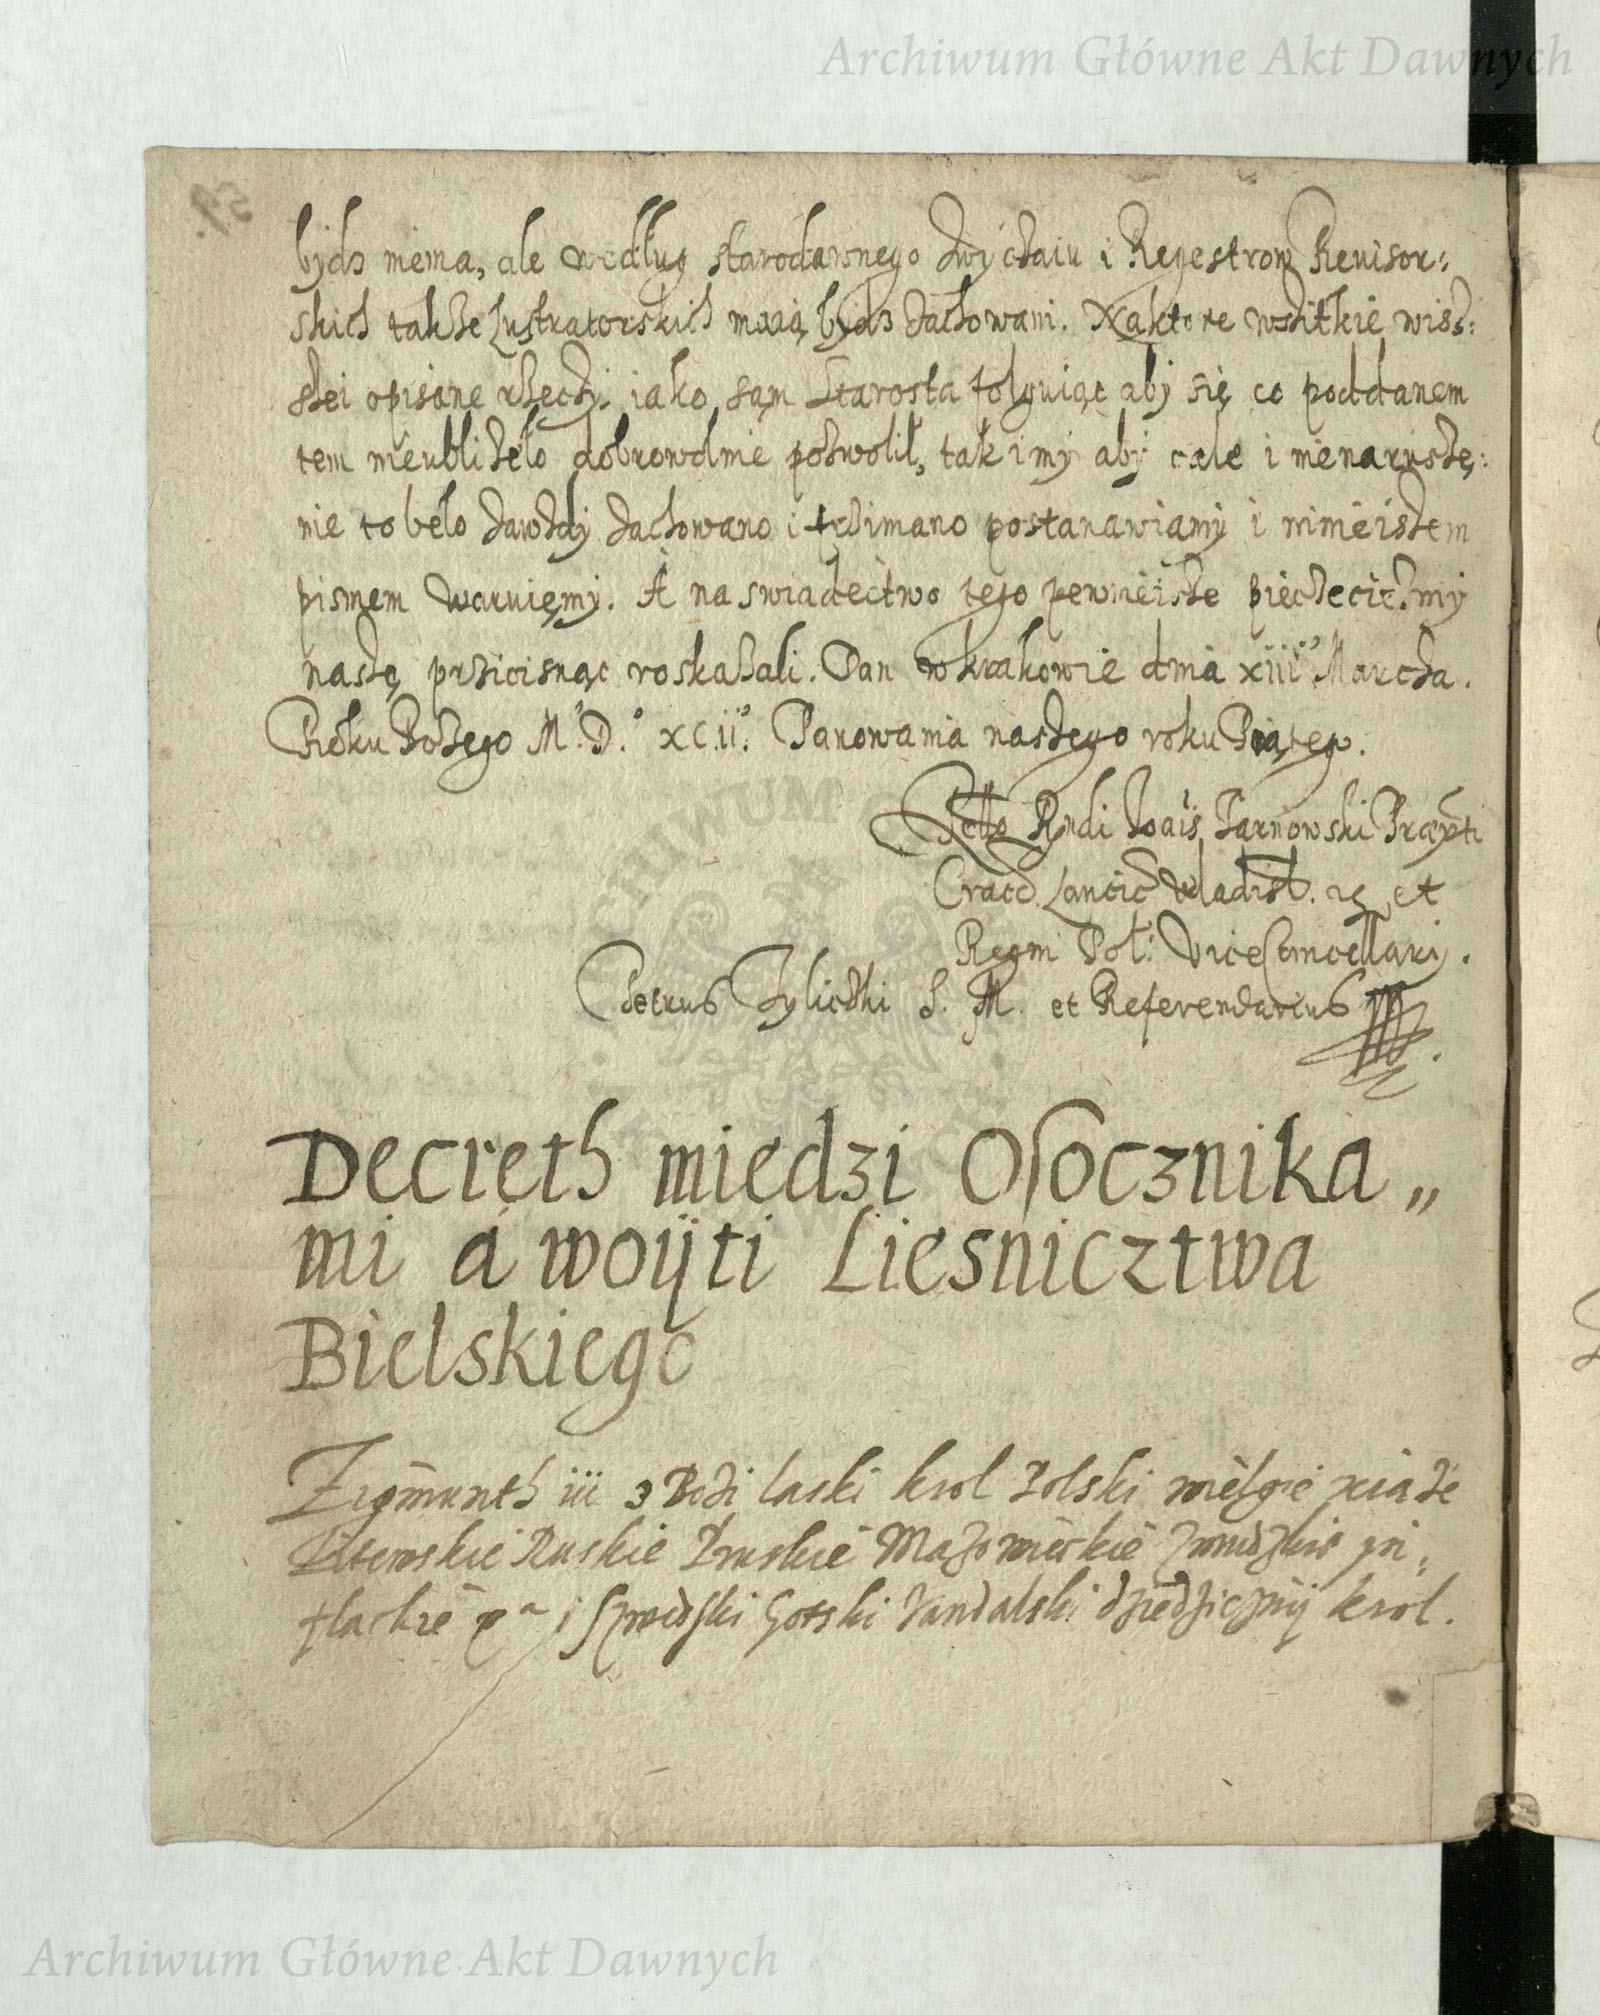 Archiwum Główne Akt Dawnych
59.
bydz niema, ale według starodawnego zwyczaiu i Regestrow Reuisor:
skich także Lustratorskich maią bydz zachowani. Na ktore wszitkie wisz:
szei opisane rzeczy iako sam Starosta folguiąc aby się co poddanem
tem nieubliżeło dobrowolnie pozwolił, tak i my aby cale i nienarusze:
nie to beło zawżdy zachowano i trzimano postanawiamy i ninieiszem
pismem waruięmy. A na swiadectwo tego pewnieisze pieczecieszmy
naszę prziciznąc roskazali. Dan w Krakowie dnia xiii Marcza.
Roku Bożego M. D. XCii. Panowania naszego roku Piątego.
Rndi Joais Tarnowski Præpti
Cracc. Lancic Wladisl. et
Regni Pol: Vice Cancellarij.
Petrus Tyliczki S. M. et Referendarius
Decreth miedzi Osocznika„
mi á woijti Liesnicztwa
Bielskiego
Zigmunth iii z Bozi laski krol Polski wielgie xiaże
Litewskie Ruskie Pruskie Mazowieckie Zmudzkie in„
flackie i Szwedzki Gotski Vandalski dziedzicznij krol.
Archiwum Główne Akt Dawnych